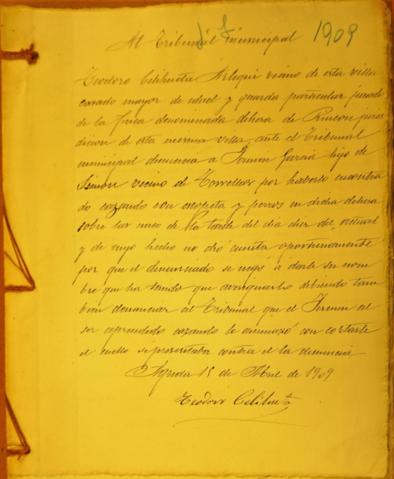 Al Tribunal Municipal 1909
Teodoro Celibueta Arlegui vecino de esta villa
casado mayor de edad y guarda particular jurado
de la finca denominada dehesa de
de esta misma villa, ante el Tribunal
municipal denuncia a Ramon Garcia hijo de
Simon vecino de por haberlo encontra
do cazando con escopeta y perros en dicha dehesa
sobre las de la tarde del dia diez del actual
y de cuyo hecho no dió cuenta oportunamente
por que el denunciado se negó a darle su nom
bre que ha tenido que averiguarlo debiendo tam
bien denunciar al Tribunal que el al
ser reprendido cazando le amenazó con cortarle
el cuello si presentaba contra el la denuncia
Agreda 15 de Abril de 1909
Teodoro Celibueta